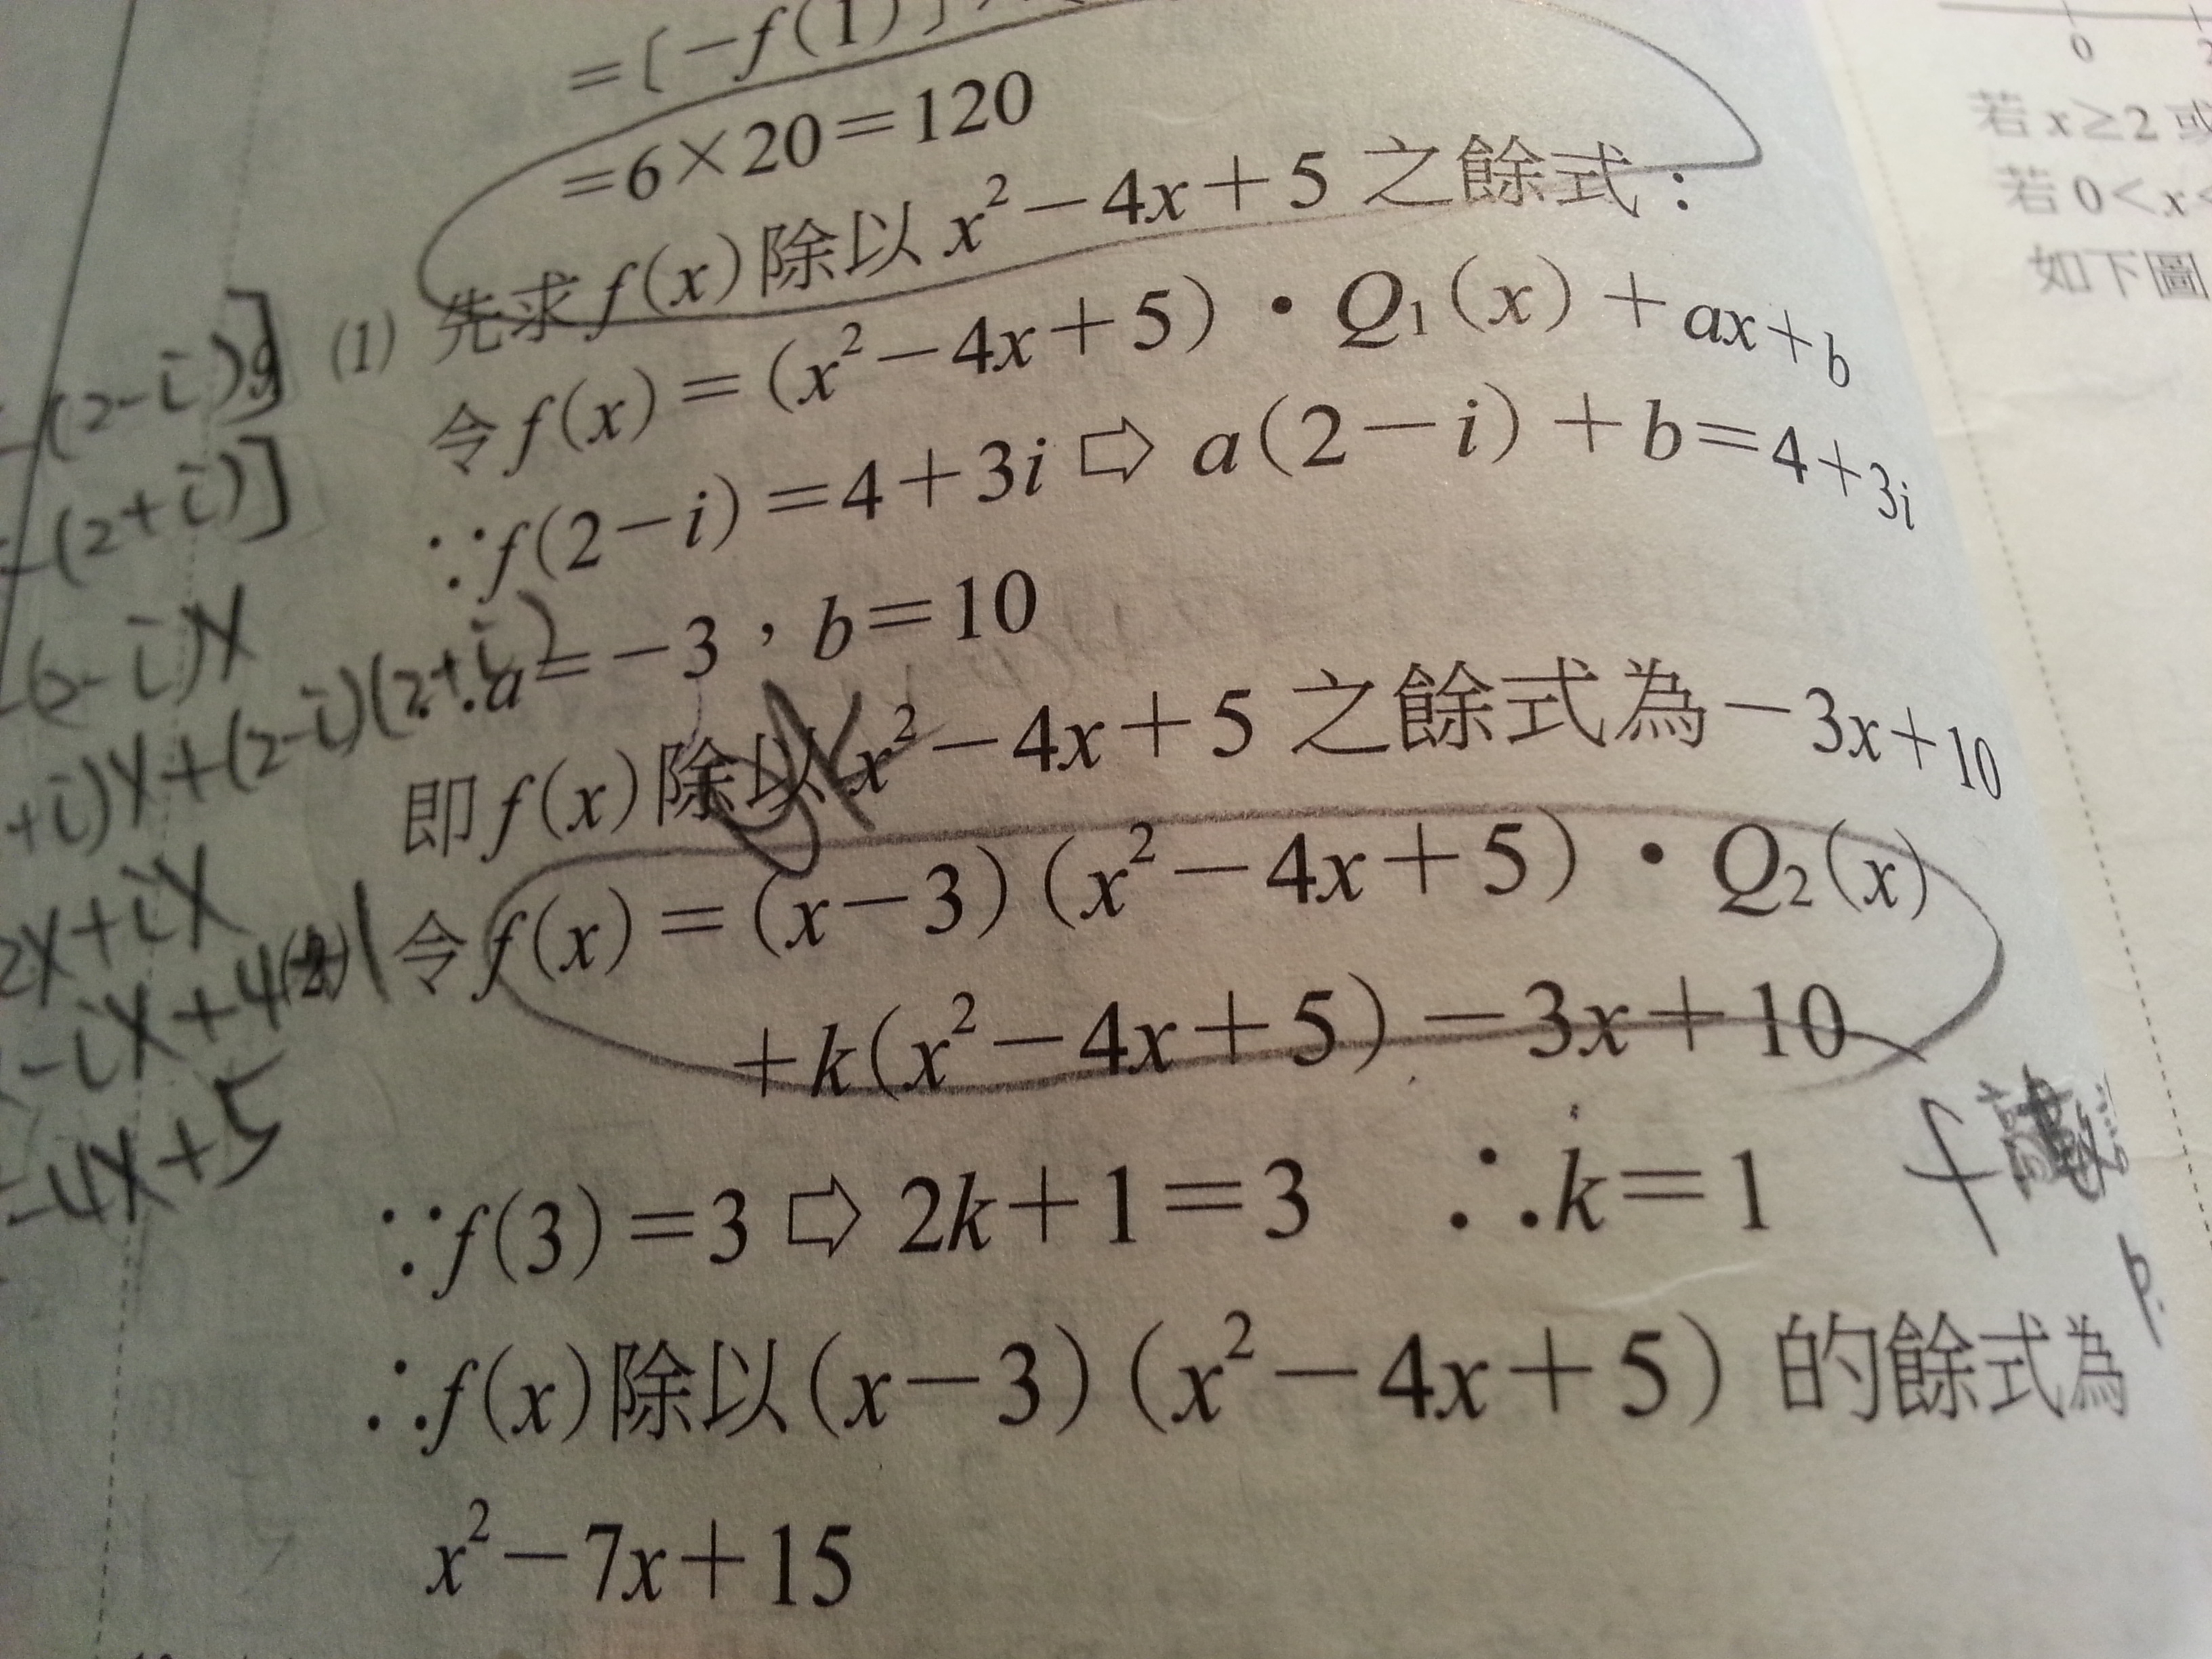 =[-f(1)]
=6×20=120
(1) 先求f(x)除以x²-4x+5之餘式：
令f(x)=(x²-4x+5)・Q₁(x)+ax+b
∵f(2-i)=4+3i⇨a(2-i)+b=4+3i
∴a=-3，b=10
即f(x)除以x²-4x+5之餘式為-3x+10
令f(x)=(x-3)(x²-4x+5)・Q₂(x)
+k(x²-4x+5)-3x+10
∵f(3)=3⇨2k+1=3 ∴k=1
∴f(x)除以(x-3)(x²-4x+5)的餘式為
x²-7x+15
-(2-i)]
-(2+i)]
-(2-i)x
+i)x+(2-i)(2+i)
2x+ix
-ix+4
-4x+5
0
若x≥2或
若0<x<
如下圖